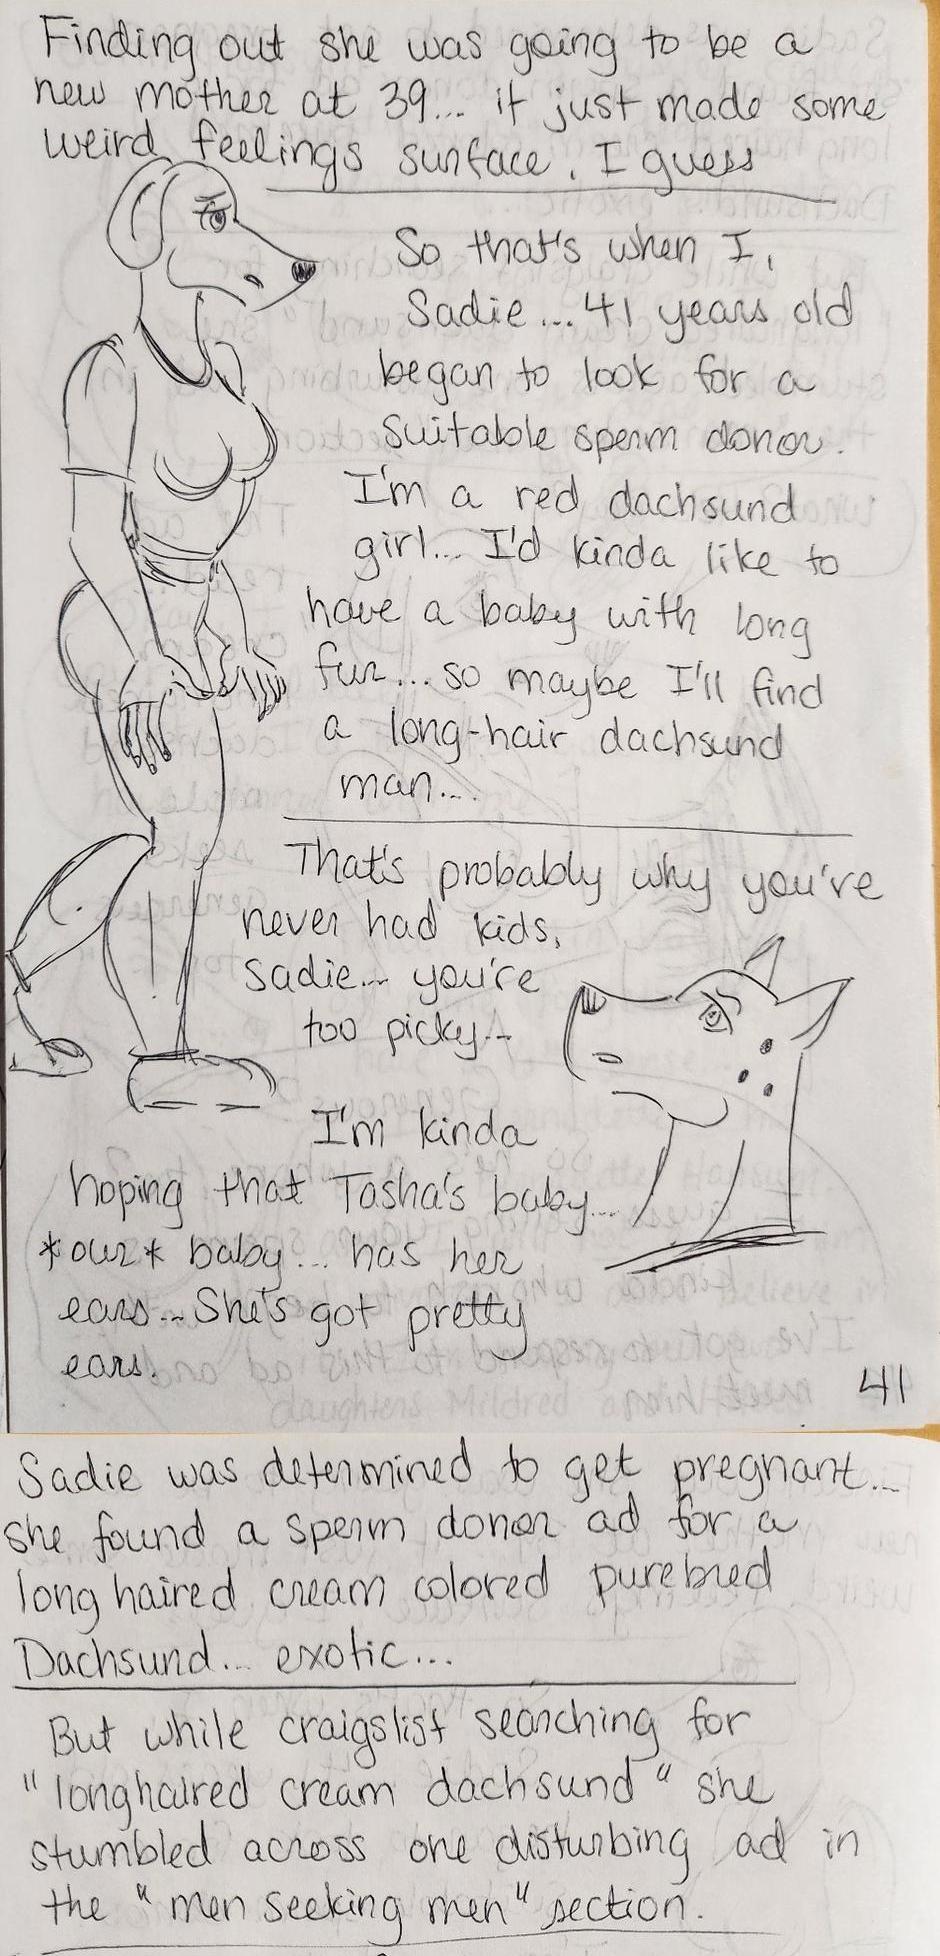 Finding out she was going to be a
new mother at 39... it just made some
weird feelings surface. I guess
So that's when I,
Sadie... 41 years old
began to look for a
suitable sperm donor.
I'm a red dachsund
girl... I'd kinda like to
have a baby with long
fur... so maybe I'll find
a long-hair dachsund
man...
That's probably why you're
never had kids,
Sadie... you're
too picky...
I'm kinda
hoping that Tasha's baby...
*our* baby... has her
ears... She's got pretty
ears.
41
Sadie was determined to get pregnant...
she found a sperm donor ad for a
long haired cream colored purebred
Dachsund... exotic...
But while craigslist searching for
"longhaired cream dachsund" she
stumbled across one disturbing ad in
the "men seeking men" section.